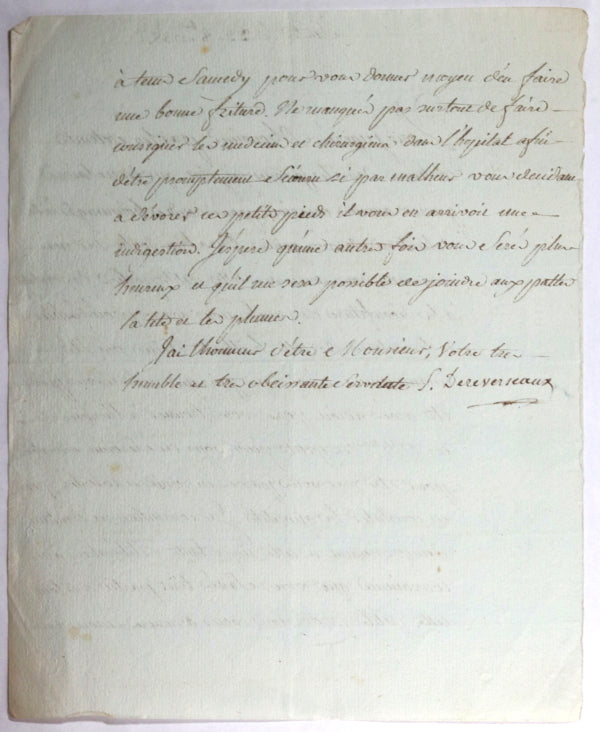 à tems Samedy pour vous donner moyen d'en faire
une bonne friture. Ne manquéé pas surtout de faire
consigner les medecins et chirurgiens dans l'hopital afin
d'etre promptement Secouru si par malheur vous decidant
a dévorer ces petits pieds il vous en arrivoit une
indigestion. J'espere qu'une autre fois vous Seréé plus
heureux et qu'il me sera possible de joindre aux pattes
la tete et les plumes.
J'ai l'honneur d'être Monsieur, Votre tres
humble et tres obeissante Servante S. Dereverseaux